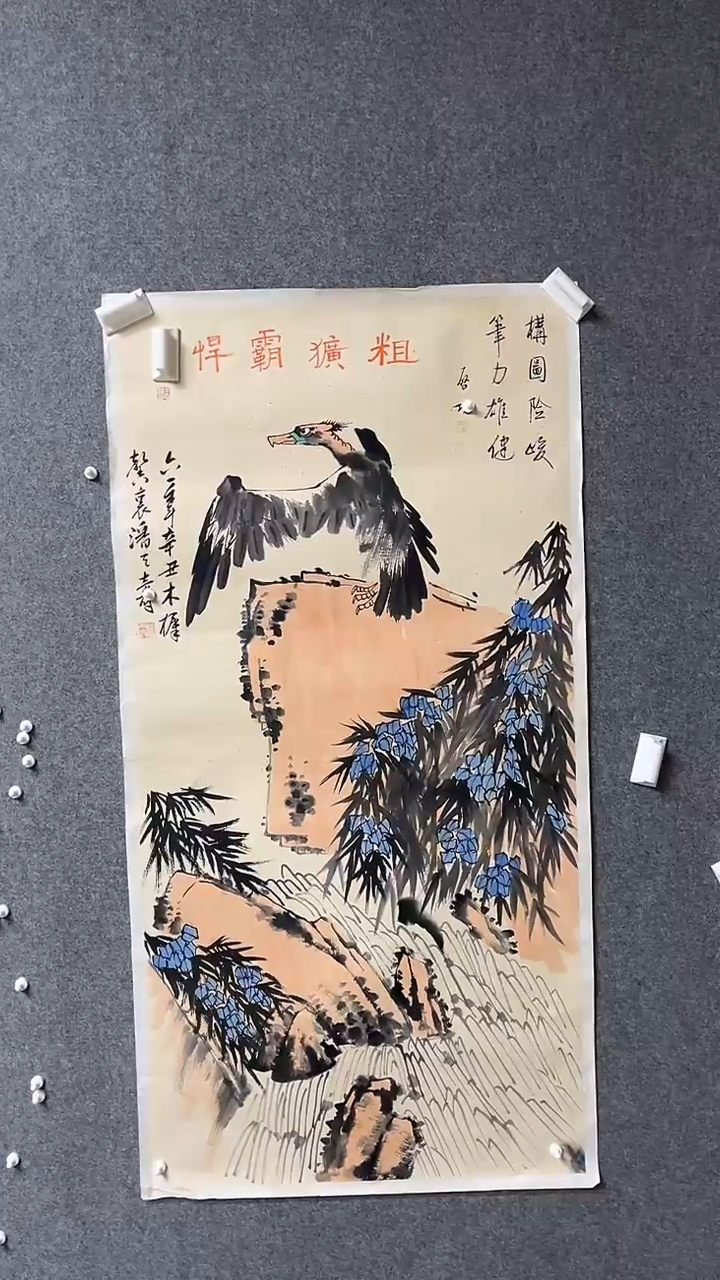 粗獷霸悍
構圖险峻
筆力雄健
啓功
六一年辛丑木樨
馨裏潘天壽